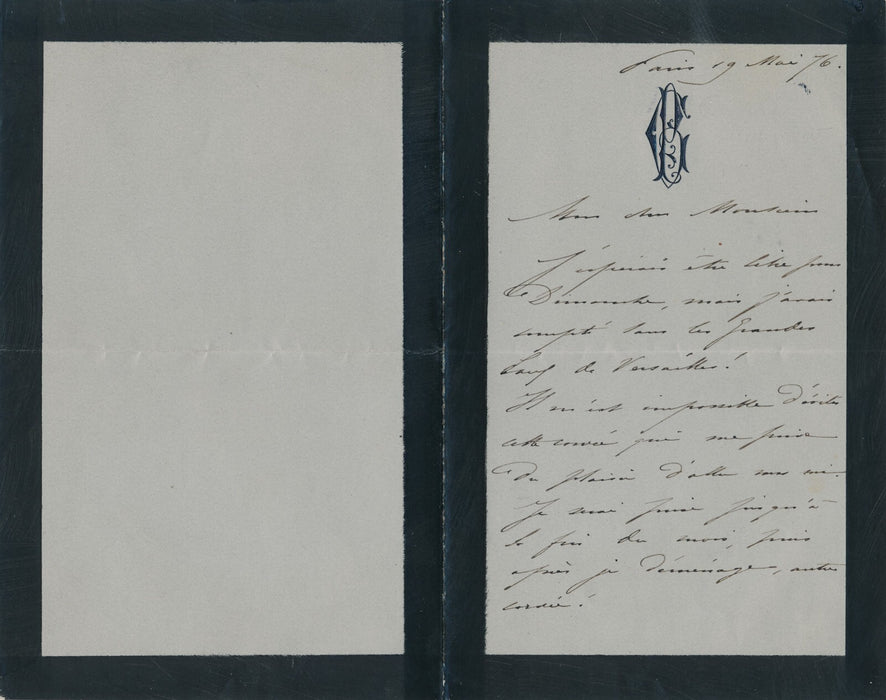 Paris 19 Mai 76.
Mon cher Monsieur
J'espérais être libre pour
Dimanche, mais j'avais
compté sans les Grandes
Eaux de Versailles!
Il m'est impossible d'éviter
cette corvée qui me prive
du plaisir d'aller vous voir.
Je suis prise jusqu'à
la fin du mois, puis
après je déménage, autre
corvée!